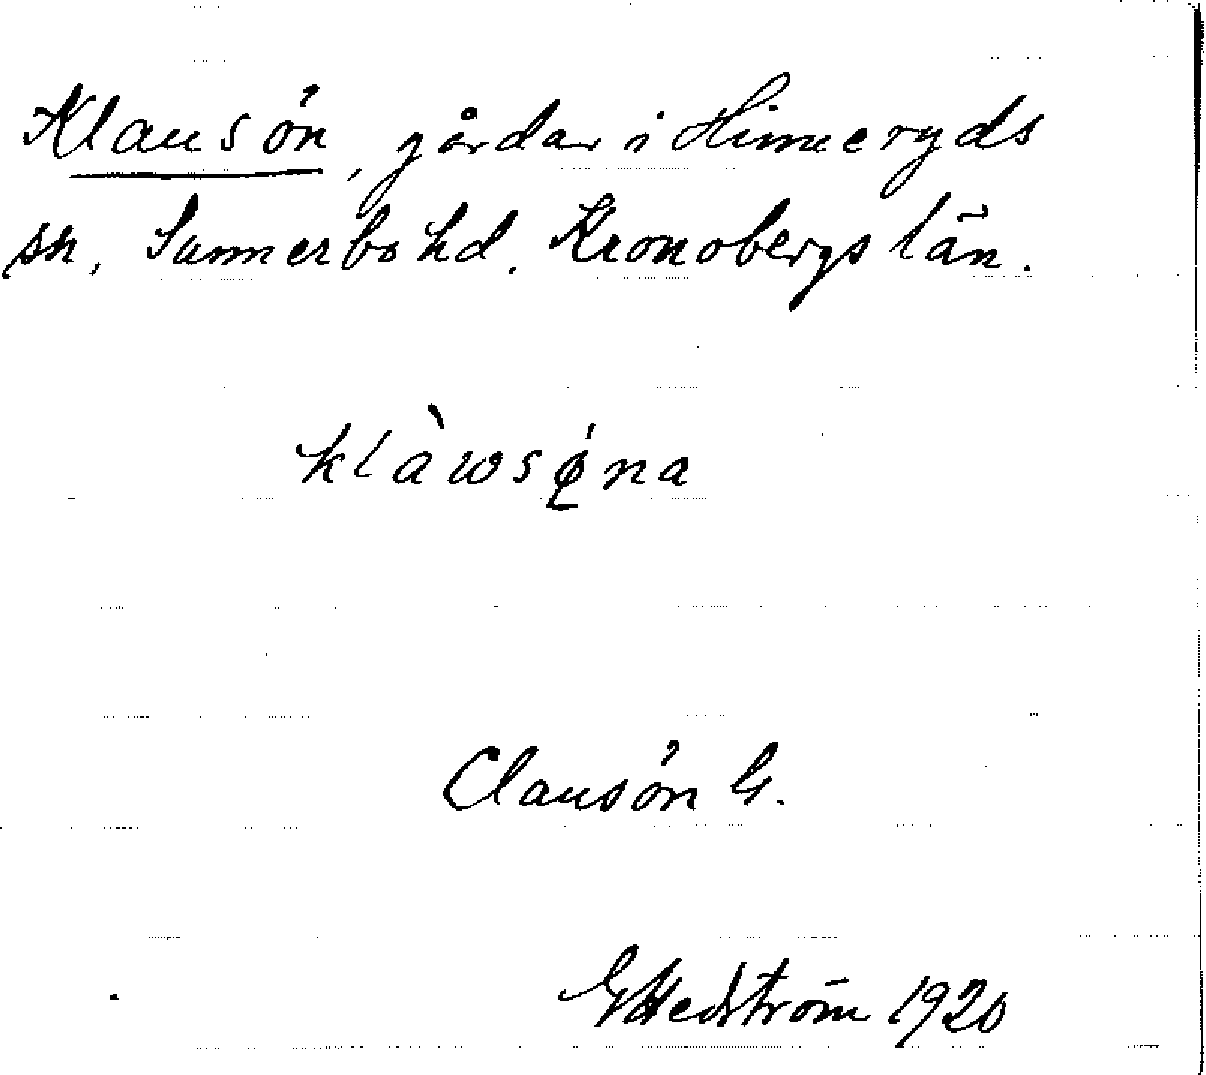 Klausön, gårdar i Hinneryds
sn, Sunnerbo hd. Kronobergs län.
klàwsǿ̨na
Clausön G.
G Hedström 1920